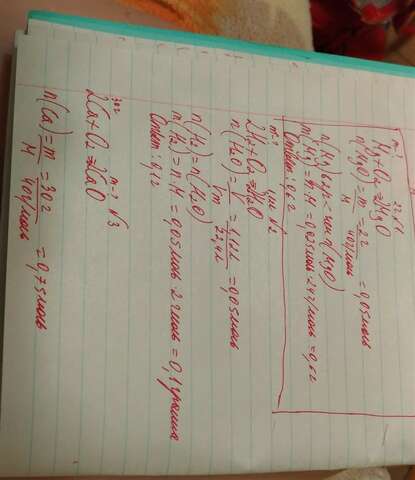 m-? 2г
Mg+O₂=2MgO
n(MgO)=m/M=2г/40г/моль=0,05моль
m(Mg)=n·M=0,025моль·24г/моль=0,6г
Ответ: 0,6г
m-? №2
2H₂+O₂=2H₂O
n(H₂O)=V/Vm=1,12л/22,4л=0,05моль
n(H₂)=n(H₂O)
m(H₂)=n·M=0,05моль·2г/моль=0,1грамма
Ответ: 0,1г
30г m-? №3
2Ca+O₂=2CaO
n(Ca)=m/M=30г/40г/моль=0,75моль